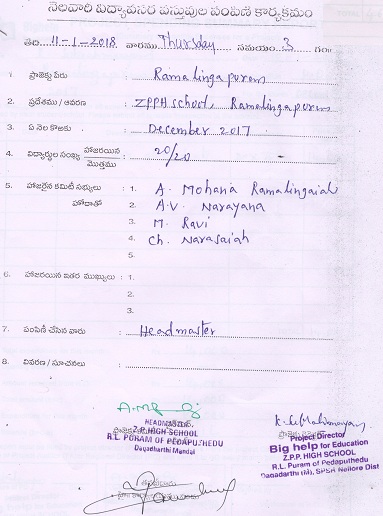 నెలవారి విద్యావసర వస్తువుల పంపిణీ కార్యక్రమం
తేది. 11-1-2018 వారము Thursday సమయం 3 గం॥
1. ప్రాజెక్టు పేరు : Ramalingapuram
2. ప్రదేశము / ఆవరణ : ZPPH school, Ramalingapuram
3. ఏ నెల కొరకు : December 2017
4. విద్యార్థుల సంఖ్య హాజరయిన / మొత్తము : 20/20 -
5. హాజరైన కమిటీ సభ్యులు : 1. A. Mohana Ramalingaiah
హోదాతో 2. A.V. Narayana
3. M. Ravi
4. Ch. Narasaiah
5.
6. హాజరయిన ఇతర ముఖ్యులు : 1.
2.
3.
7. పంపిణీ చేసిన వారు : Headmaster
8. వివరణ / సూచనలు :
HEADMASTER
Z.P. HIGH SCHOOL
R.L PURAM OF PEDAPUTHEDU
Dagadarthi Mandal
Project Director
Big help for Education
Z.P.P. HIGH SCHOOL
R.L. Puram of Pedaputhedu
Dagadarthi (M), SPSR Nellore Dist